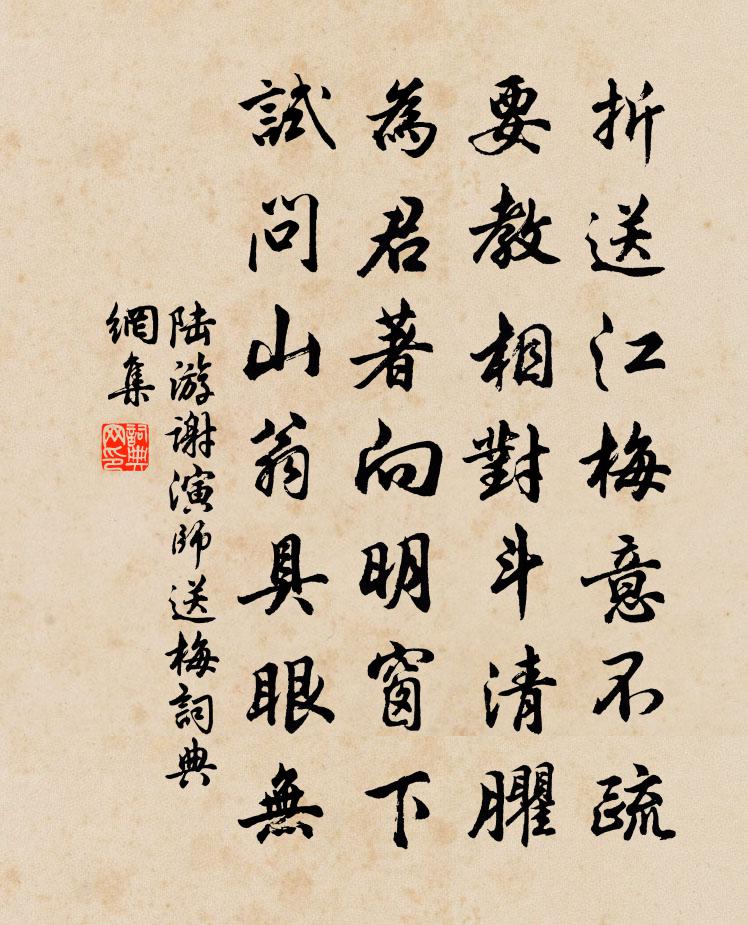 折送江梅意不疏
要教相對斗清臞
為君著向明窗下
試問山翁具眼無
陆游谢演師送梅詞典
網集
詞典
网印